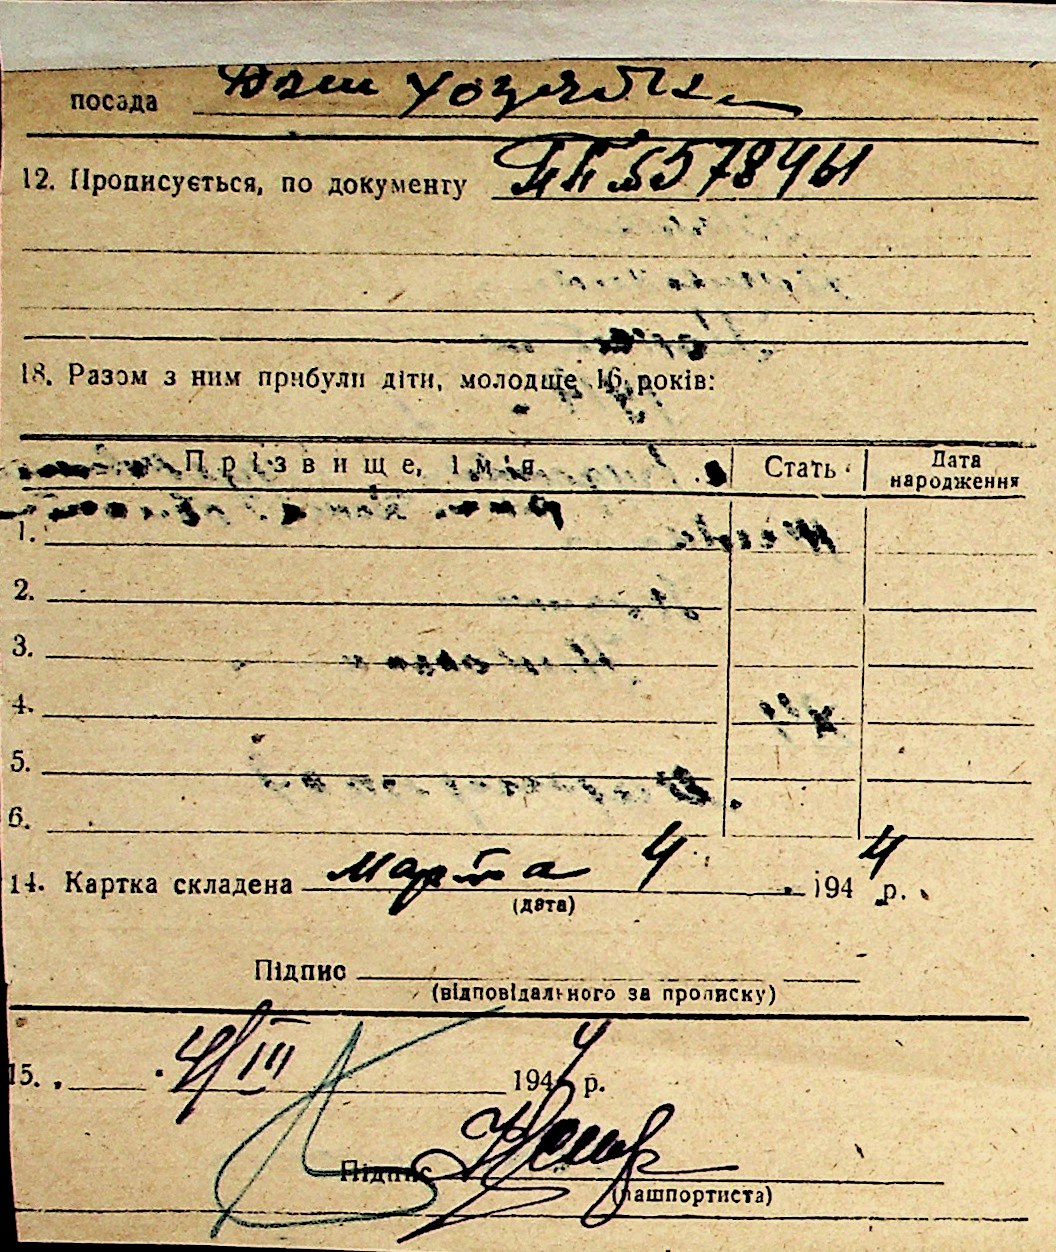 посада Дом хозяйка
12. Прописується, по документу ПП № 578461
18. Разом з ним прибули діти, молодще 16 років:
Прізвище, ім'я Стать Дата народження
1.
2.
3.
4.
5.
6.
14. Картка складена марта 4 1944 р.
(дата)
Підпис
(відповідального за прописку)
15. 4/III 1944 р.
Підпис
(пашпортиста)